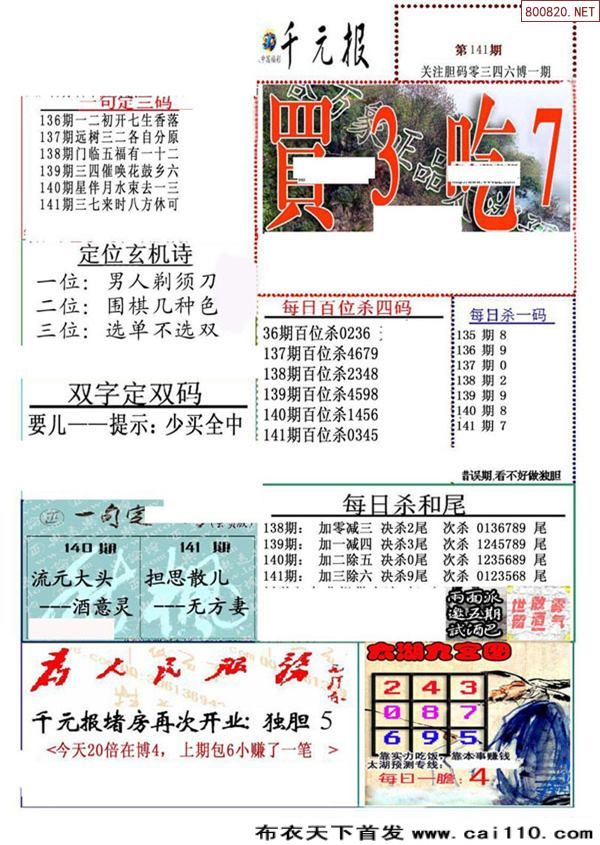 800820.NET
千元报
第141期
关注胆码零三四六博一期
一句定三码
136期一二初开七生香落
137期远树三二各自分原
138期门临五福有一十二
139期三四催唤花鼓乡六
140期星伴月水束去一三
141期三七来时八方休可
買3吃7
定位玄机诗
一位：男人剃须刀
二位：围棋几种色
三位：选单不选双
每日百位杀四码
36期百位杀0236
137期百位杀4679
138期百位杀2348
139期百位杀4598
140期百位杀1456
141期百位杀0345
每日杀一码
135 期 8
136 期 9
137 期 0
138 期 2
139 期 9
140 期 8
141 期 7
错误期,看不好做独胆
双字定双码
要儿——提示：少买全中
一句定
140期
流元大头
---酒意灵
141 期
担思散儿
---无方妻
每日杀和尾
138期： 加零减三 决杀2尾 次杀 0136789 尾
139期： 加一减四 决杀3尾 次杀 1245789 尾
140期： 加二除五 决杀0尾 次杀 1235689 尾
141期： 加三除六 决杀9尾 次杀 0123568 尾
两面派
邀五期
试酒巴
世 散 雾
留 道 气
为人民服务
千元报堵房再次开业：独胆 5
<今天20倍在博4，上期包6小赚了一笔 >
太湖九宫图
2 4 3
0 8 7
6 9 5
靠实力吃饭，靠本事赚钱
太湖预测专线：
每日一胆：4
布衣天下首发 - www.cai110.com